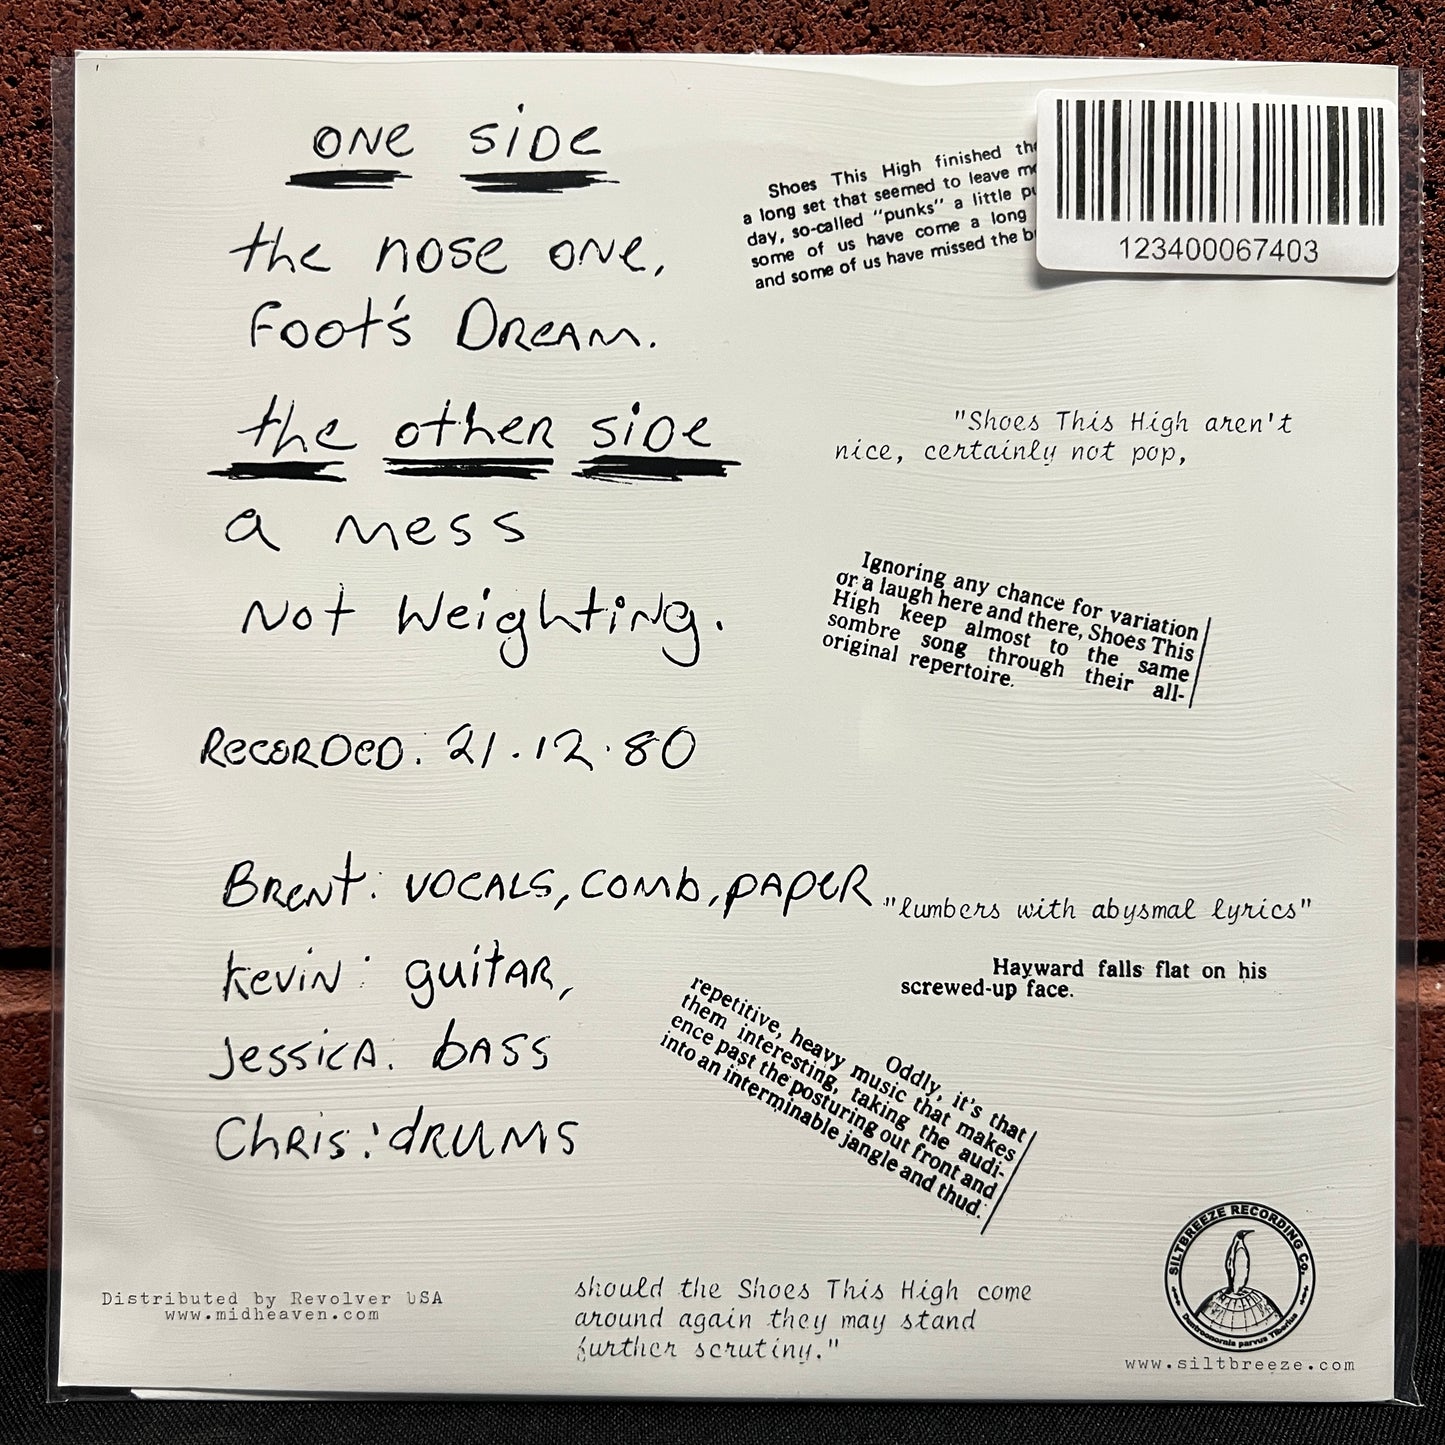 one side
the nose one,
Foot's Dream.
the other side
a mess
Not Weighting.
Recorded. 21.12.80
Brent: vocals, comb, paper
Kevin: guitar,
Jessica. bass
Chris: drums
Distributed by Revolver USA
www.midheaven.com
Shoes This High finished the
a long set that seemed to leave
day, so-called "punks" a little
some of us have come a long
and some of us have missed the
123400067403
"Shoes This High aren't
nice, certainly not pop,
Ignoring any chance for variation
or a laugh here and there, Shoes This
High keep almost to the same
sombre song through their all-
original repertoire.
"lumbers with abysmal lyrics"
Hayward falls flat on his
screwed-up face.
Oddly, it's that
repetitive, heavy music that makes
them interesting, taking the audi-
ence past the posturing out front and
into an interminable jangle and thud.
should the Shoes This High come
around again they may stand
further scrutiny."
SILTBREEZE RECORDING Co.
www.siltbreeze.com